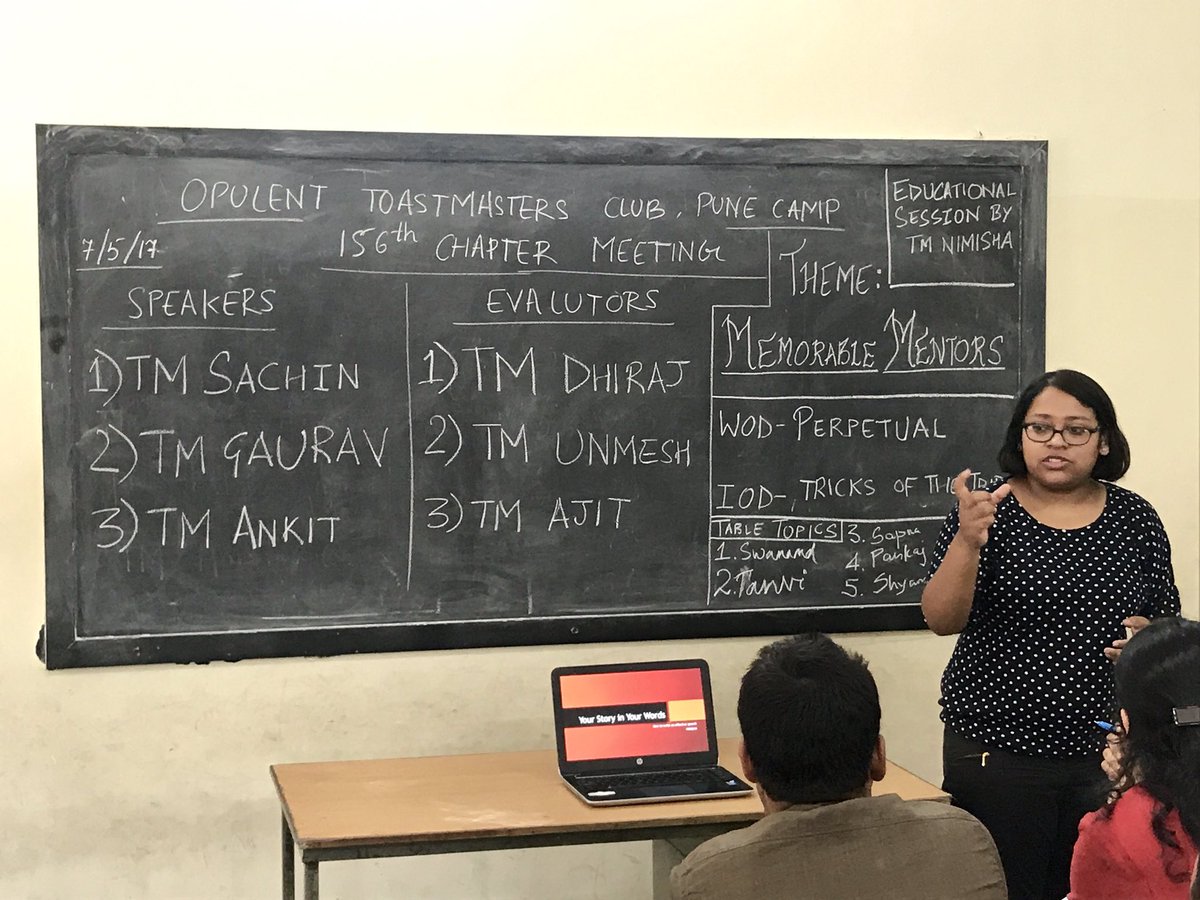 OPULENT TOASTMASTERS CLUB, PUNE CAMP
7/5/17
156th CHAPTER MEETING
EDUCATIONAL
SESSION BY
TM NIMISHA
SPEAKERS
1) TM SACHIN
2) TM GAURAV
3) TM ANKIT
EVALUTORS
1) TM DHIRAJ
2) TM UNMESH
3) TM AJIT
THEME:
MEMORABLE MENTORS
WOD- PERPETUAL
IOD-, TRICKS OF THE
TABLE TOPICS
1. Swanand
2. Tanvi
3. Sapna
4. Pankaj
5. Shyam
Your Story in Your Words
hp